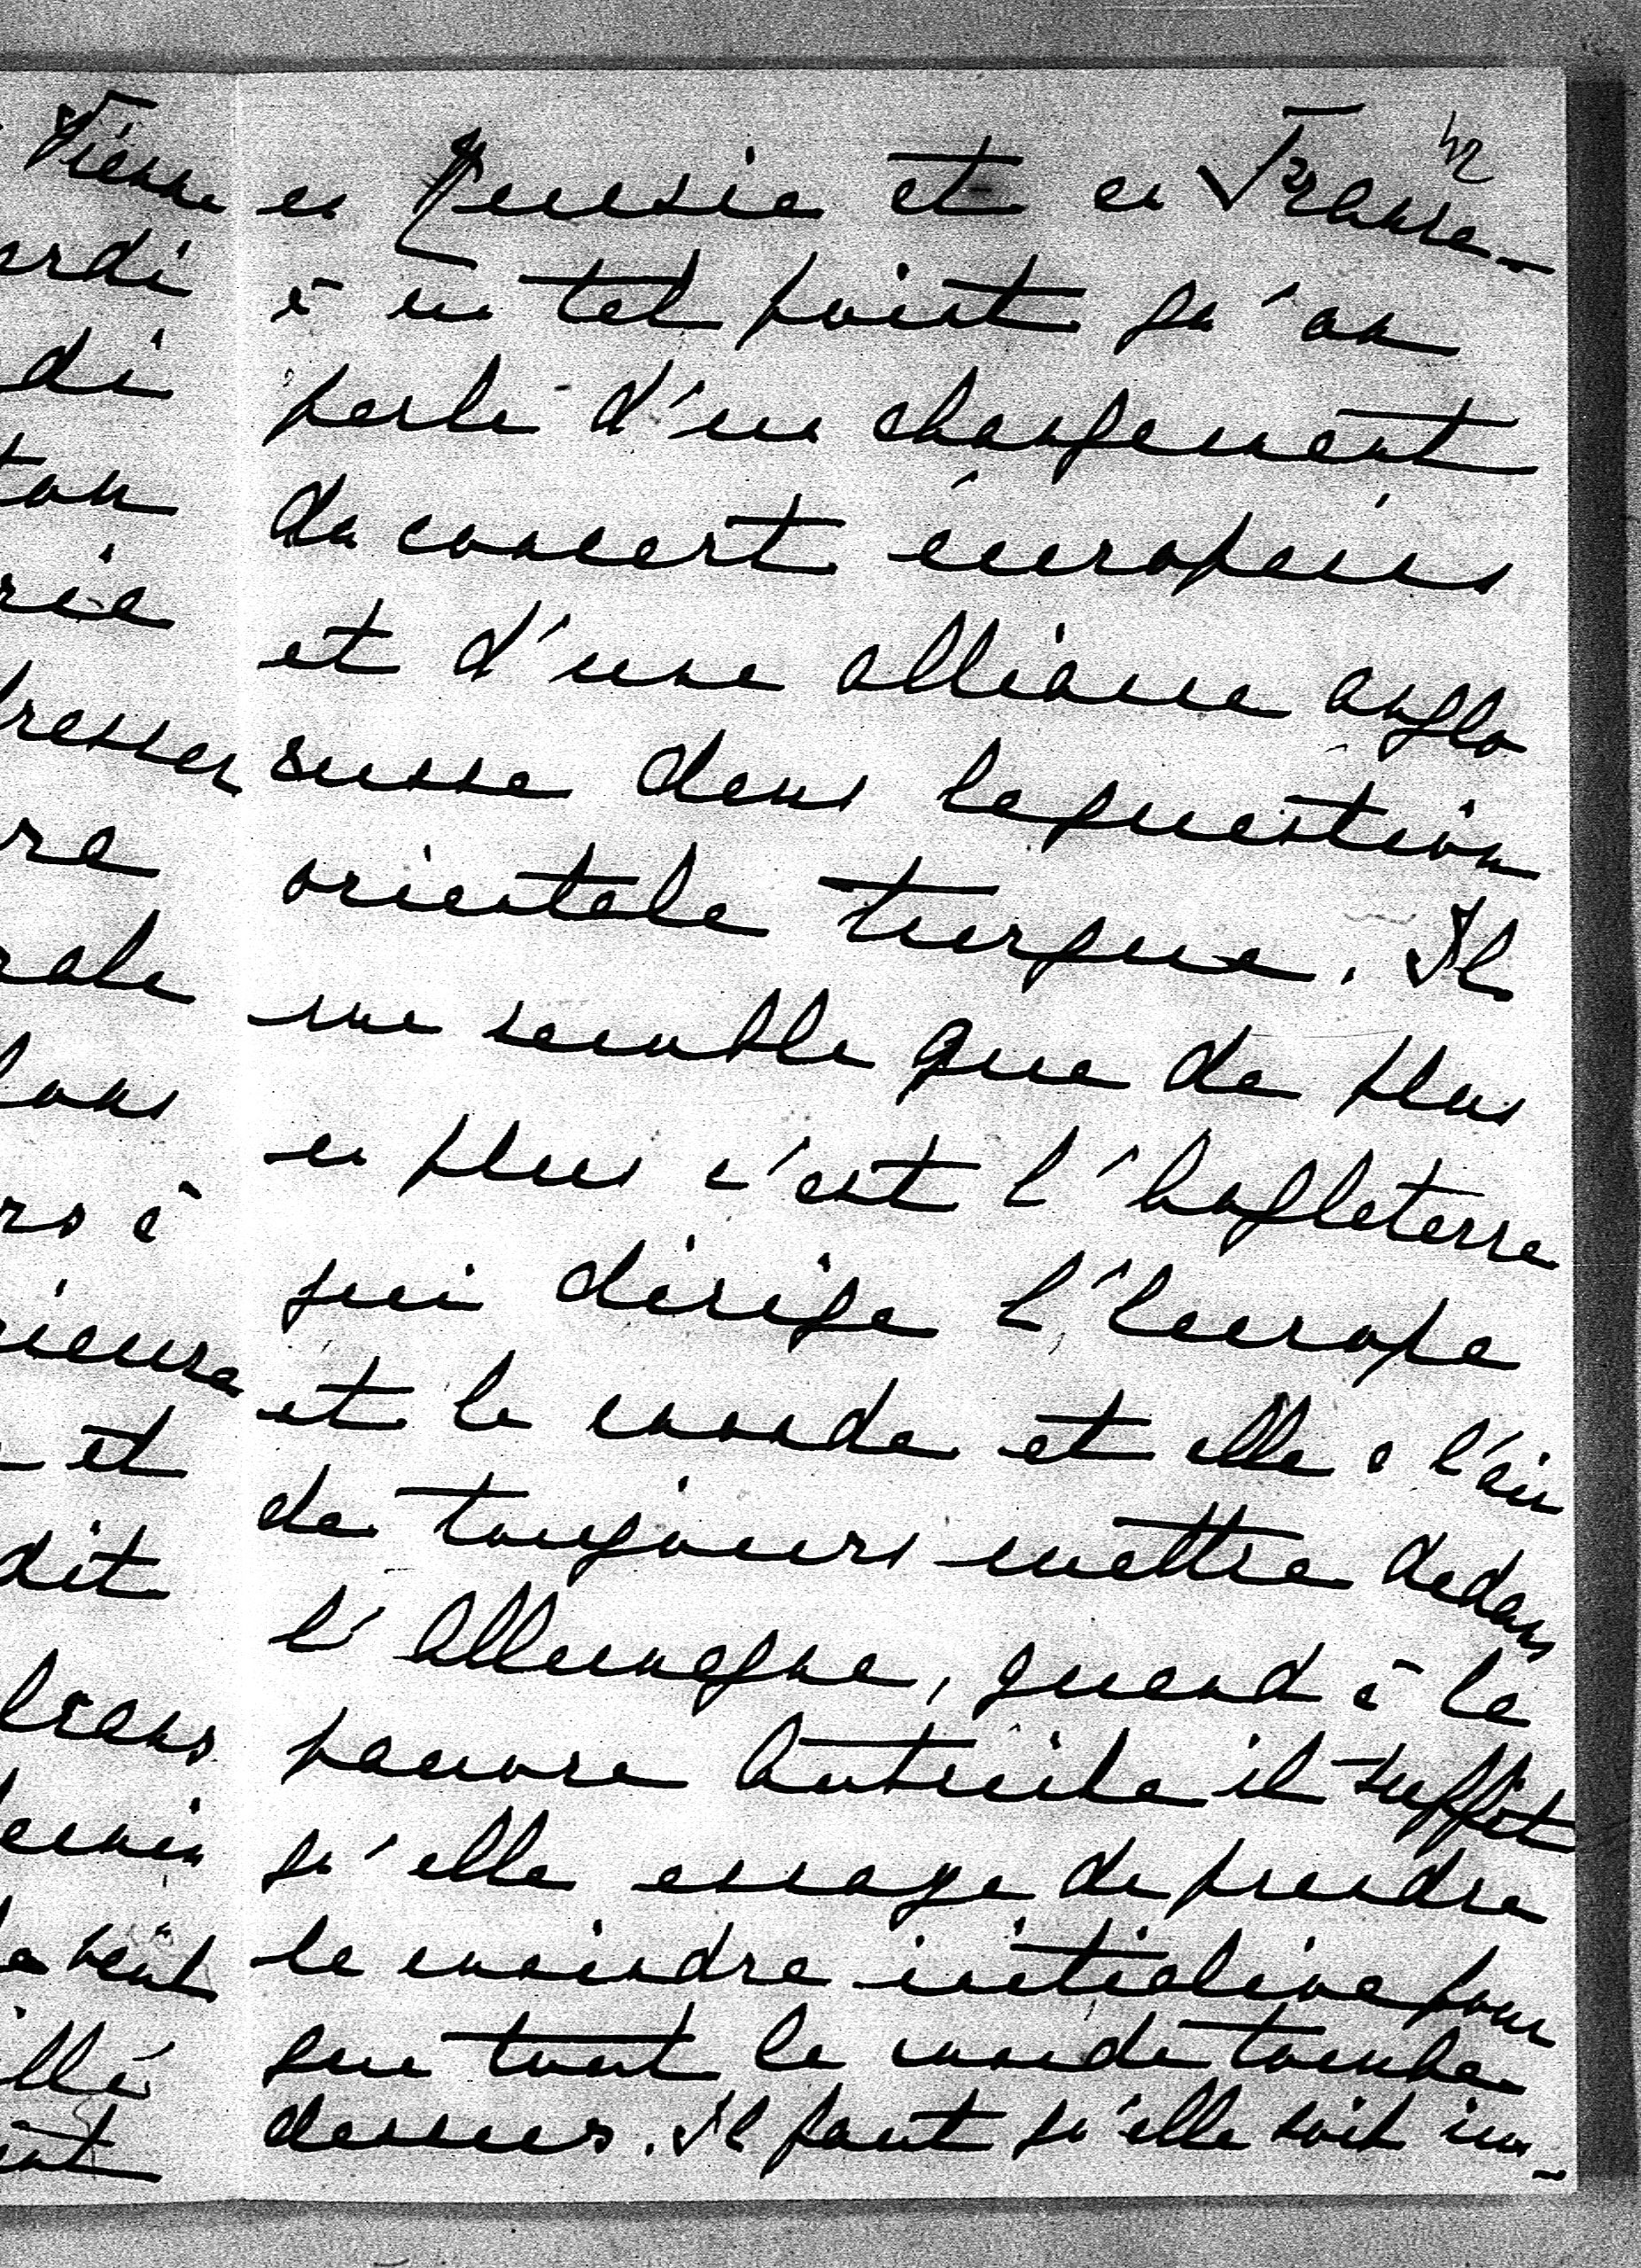 Vienne
ardi
di
ton
rie
dresser
re
rale
lons
rs à
rieure
et
dit
drons
veut
illé
42
en Russie et en France
à un tel point qu'on
parle d'un changement
du concert européens
et d'une alliance anglo
russe dans la question
orientale turque. Il
me semble que de plus
en plus c'est l'Angleterre
qui dirige l'Europe
et le monde et elle a l'air
de toujours mettre dedans
l'Allemagne, quand à la
pauvre Autriche il suffit
qu'elle essaye de prendre
la moindre initiative pour
que tout le monde tombe
dessus. Il faut qu'elle soit im-